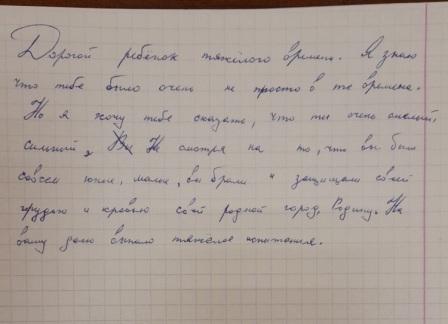 Дорогой ребёнок тяжёлого времени. Я знаю
что тебе было очень не просто в те времена.
Но я хочу тебе сказать, что ты очень смелый,
сильный, Не смотря на то, что вы были
совсем юные, малы, вы брали и защищали свой
грудью и кровью свой родной город, Родину. На
вашу долю выпало тяжёлое испытания.